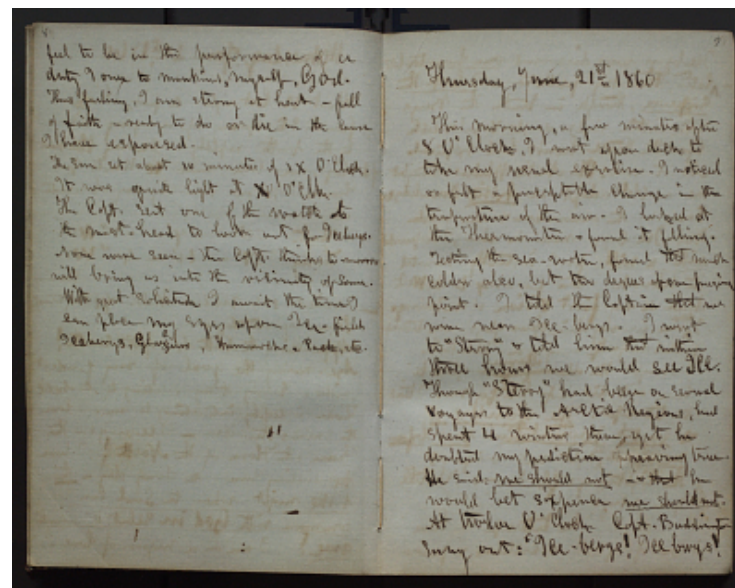 8
feel to be in the performance of a
duty I owe to mankind, myself, God.
Thus feeling, I am strong at heart - full
of faith & ready to do or die in the cause
I have espoused.
The Sun set about 10 minutes of IX O'Clock.
It was quite light at X O'Clk.
The Capt. sent one of the watch to
the mast-head to look out for Icebergs.
None were seen - the Capt. thinks to-morrow
will bring us into the vicinity of some.
With great solicitude I await the time I
can place my eyes upon Ice-fields
Icebergs, Glaciers, Hummocks, Pack, etc.
9
Thursday, June, 21st 1860
This morning, a few minutes after
8 O'Clock, I went upon deck to
take my usual exercise. I noticed
or felt a perceptible change in the
temperature of the air. I looked at
the Thermometer & found it falling.
Testing the sea-water, found that much
colder also, but ten degrees from freezing
point. I told the Captain that we
were near Ice-bergs. I went
to "Sterry" & told him that within
three hours we would see Ice.
Though "Sterry" had been on several
voyages to the Arctic Regions, had
spent 4 winters there, yet he
doubted my prediction proving true.
He said, we should not - that he
would bet sixpence we should not.
At twelve O'Clock Capt. Buddington
sung out: "Ice-bergs! Icebergs!